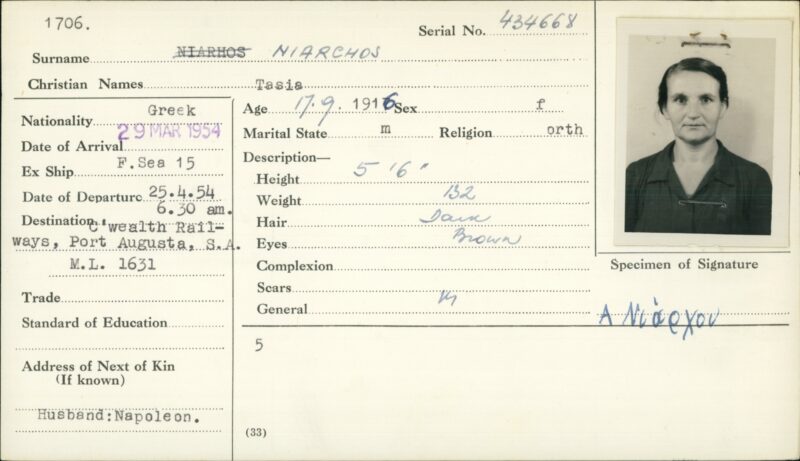 1706.
Serial No. 434668
Surname NIARHOS NIARCHOS
Christian Names Tasia
Nationality Greek
Date of Arrival 29 MAR 1954
Ex Ship F.Sea 15
Date of Departure 25.4.54
6.30 am.
Destination C'wealth Rail-
ways, Port Augusta, S.A.
M.L. 1631
Trade
Standard of Education
Address of Next of Kin
(If known)
Husband:Napoleon.
Age 17.9.1916 Sex f
Marital State m Religion orth
Description—
Height 5'6"
Weight 132
Hair Dark
Eyes Brown
Complexion
Scars
General
5
(33)
Specimen of Signature
Α Νιάρχου